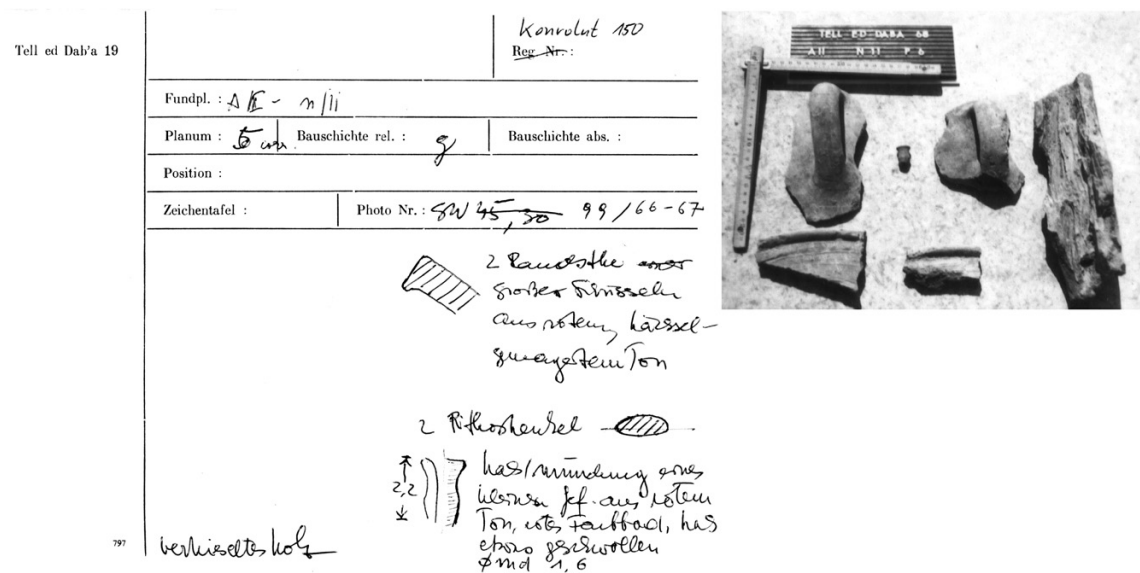 Tell ed Dab'a 19
Konvolut 150
Reg. Nr. :
Fundpl. : A II - n/11
Planum : 5
Bauschichte rel. : g
Bauschichte abs. :
Position :
Zeichentafel :
Photo Nr. : SW 45, 30 99/66-67
2 Randstke
großer Schüsseln
aus rotem, häcksel-
gemagertem Ton
2 Pithoshenkel
Hals/mündung eines
kleinen Gef. aus rotem
Ton, rotes Farbbad, Hals
geschwollen
Ø md 1,6
2,2
verkieseltes Holz
797
TELL ED DABA 68
A II N 11 P 6